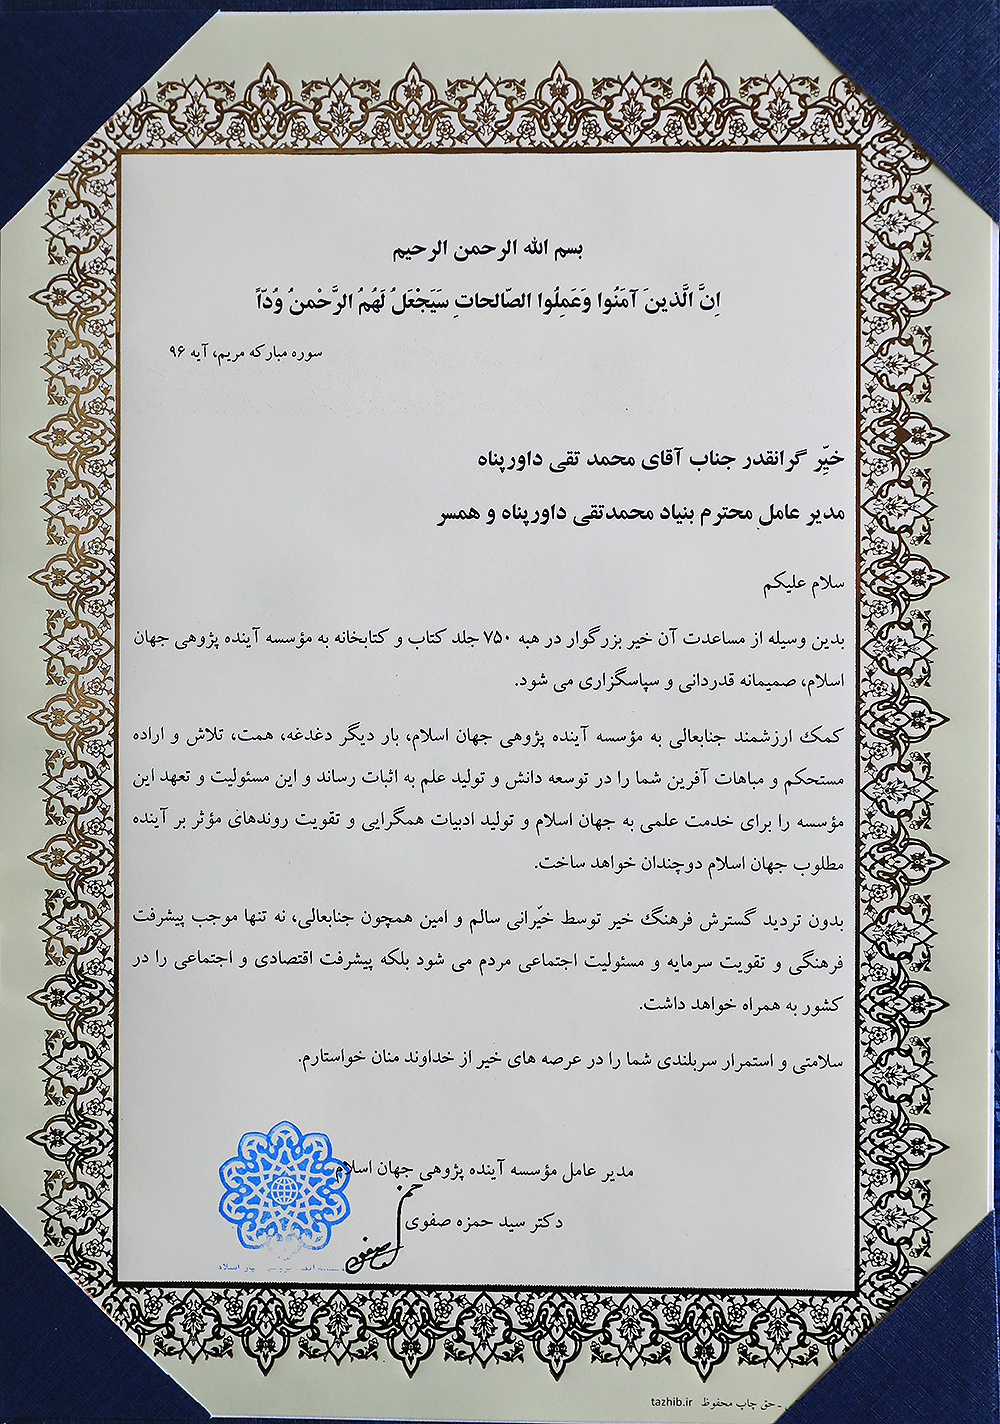 بسم الله الرحمن الرحیم
اِنَّ الَّذینَ آمَنُوا وَعَمِلُوا الصّالحاتِ سَیَجْعَلُ لَهُمُ الرَّحْمنُ وُدّاً
سوره مبارکه مریم، آیه ۹۶
خیِّر گرانقدر جناب آقای محمد تقی داورپناه
مدیر عامل محترم بنیاد محمدتقی داورپناه و همسر
سلام علیکم
بدین وسیله از مساعدت آن خیر بزرگوار در هبه ۷۵۰ جلد کتاب و کتابخانه به مؤسسه آینده پژوهی جهان
اسلام، صمیمانه قدردانی و سپاسگزاری می شود.
کمک ارزشمند جنابعالی به مؤسسه آینده پژوهی جهان اسلام، بار دیگر دغدغه، همت، تلاش و اراده
مستحکم و مباهات آفرین شما را در توسعه دانش و تولید علم به اثبات رساند و این مسئولیت و تعهد این
مؤسسه را برای خدمت علمی به جهان اسلام و تولید ادبیات همگرایی و تقویت روندهای مؤثر بر آینده
مطلوب جهان اسلام دوچندان خواهد ساخت.
بدون تردید گسترش فرهنگ خیر توسط خیّرانی سالم و امین همچون جنابعالی، نه تنها موجب پیشرفت
فرهنگی و تقویت سرمایه و مسئولیت اجتماعی مردم می شود بلکه پیشرفت اقتصادی و اجتماعی را در
کشور به همراه خواهد داشت.
سلامتی و استمرار سربلندی شما را در عرصه های خیر از خداوند منان خواستارم.
مدیر عامل مؤسسه آینده پژوهی جهان اسلام
دکتر سید حمزه صفوی
حق چاپ محفوظ tazhib.ir